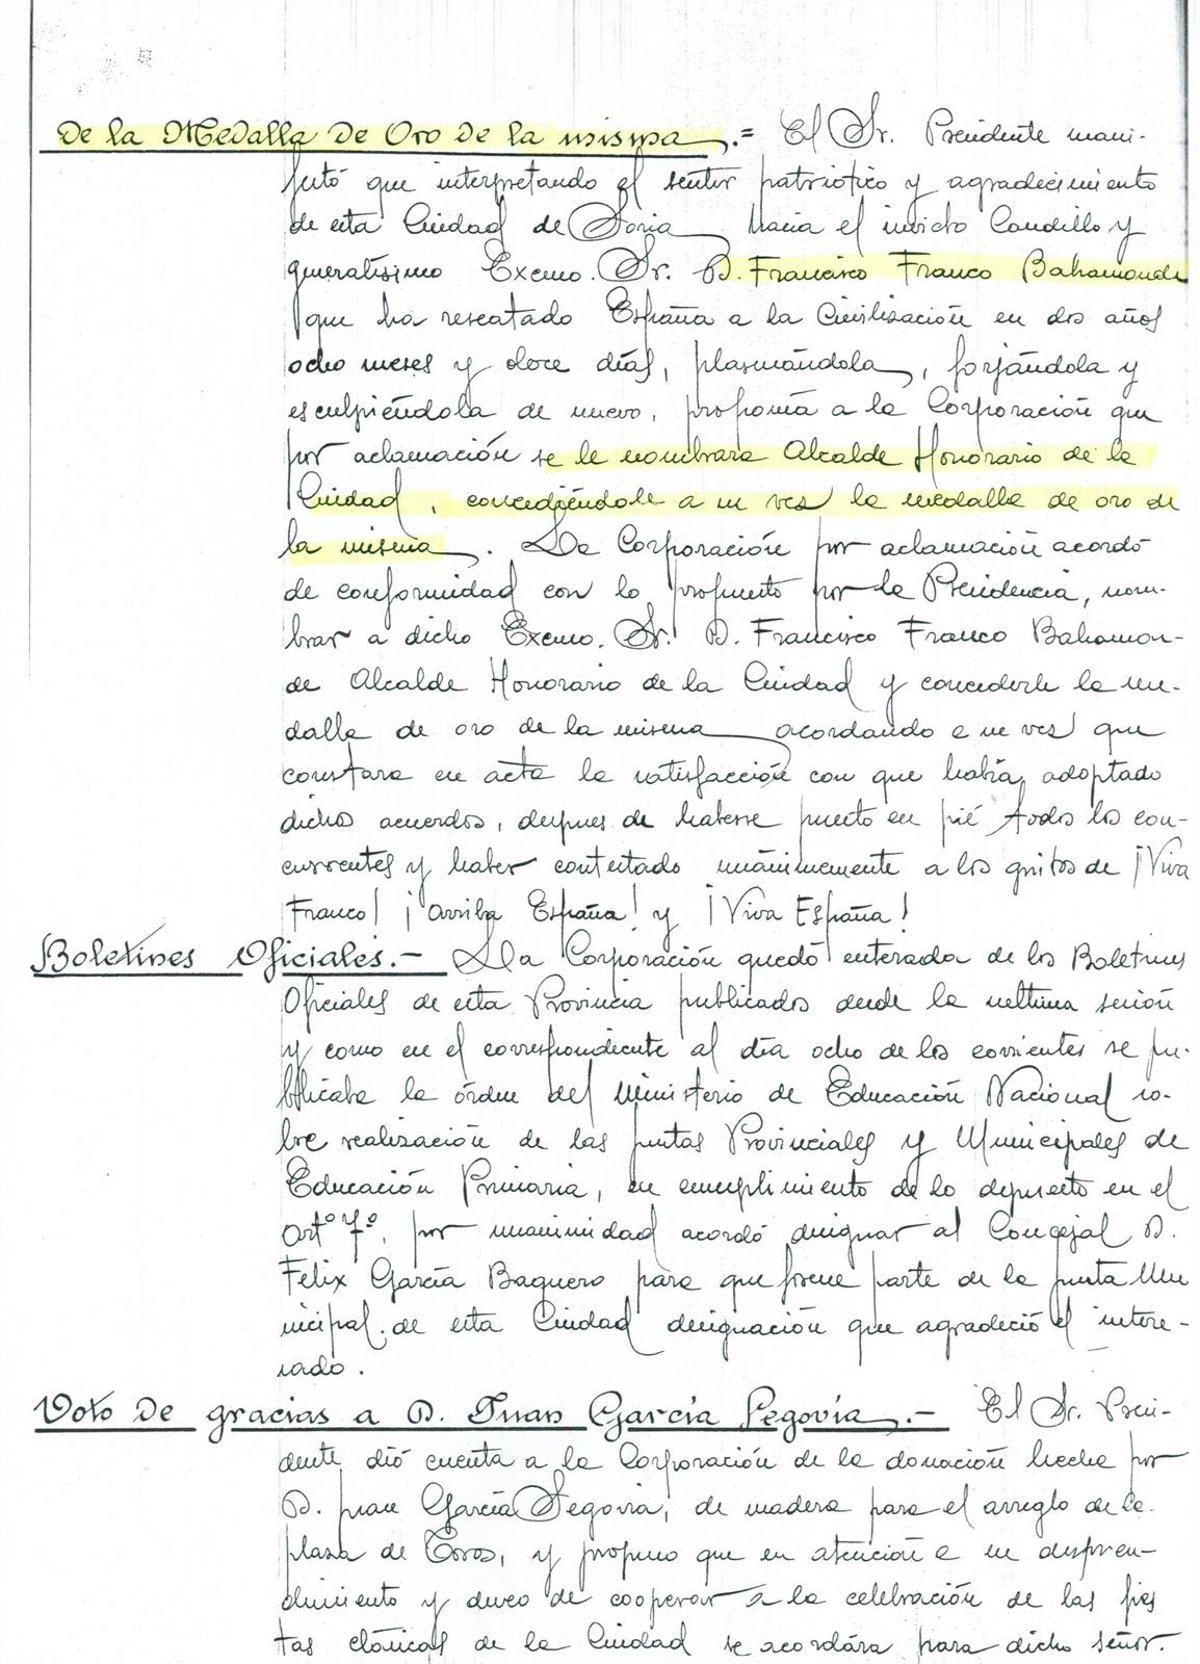 De la Medalla de Oro de la misma.= El Sr. Presidente mani-
festó que interpretando el sentir patriótico y agradecimiento
de esta Ciudad de Soria hacia el invicto Caudillo y
generalísimo Excmo. Sr. D. Francisco Franco Bahamonde
que ha rescatado España a la Civilización en dos años
ocho meses y doce días, plasmándola, forjándola y
esculpiéndola de nuevo, proponía a la Corporación que
por aclamación se le nombrara Alcalde Honorario de la
Ciudad, concediéndole a su vez la medalla de oro de
la misma. La Corporación por aclamación acordó
de conformidad con lo propuesto por la Presidencia, nom-
brar a dicho Excmo. Sr. D. Francisco Franco Bahamon-
de Alcalde Honorario de la Ciudad y concederle la me-
dalla de oro de la misma acordando a su vez que
constara en acta la satisfacción con que había adoptado
dichos acuerdos, despues de haberse puesto en pié todos los con-
currentes y haber contestado unánimemente a los gritos de ¡Viva
Franco! ¡Arriba España! y ¡Viva España!
Boletines Oficiales.- La Corporación quedó enterada de los Boletines
Oficiales de esta Provincia publicados desde la última sesión
y como en el correspondiente al día ocho de los corrientes se pu-
blicaba la órden del Ministerio de Educación Nacional so-
bre realización de las juntas Provinciales y Municipales de
Educación Primaria, en cumplimiento de lo dispuesto en el
artº 7º, por unanimidad acordó designar al Concejal D.
Felix García Baquero para que forme parte de la junta Mu
nicipal de esta Ciudad designación que agradeció el intere-
sado.
Voto de gracias a D. Juan García Segovia.- El Sr. Presi-
dente dió cuenta a la Corporación de la donación hecha por
D. Juan García Segovia, de madera para el arreglo de la
plaza de Toros, y propuso que en atención a su despren-
dimiento y deseo de cooperar a la celebración de las fies
tas clásicas de la Ciudad se acordára para dicho señor.